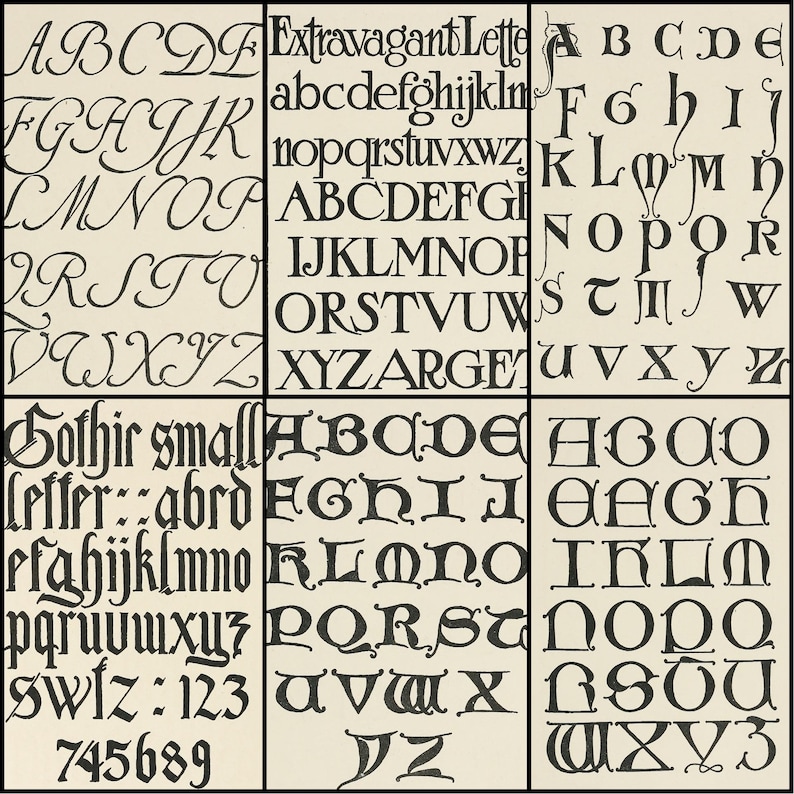 ABCDE
FGHIJK
LMNOP
QRSTU
VWXYZ
Extravagant Lette
abcdefghijklm
nopqrstuvxwz
ABCDEFGH
IJKLMNOP
QRSTVUW
XYZARGET
A B C D E
F G H I J
K L M M N
N O P Q R
S T T W
U V X Y Z
Gothic small
letter::abcd
efghijklmno
pqruvwxyz
swtz:123
745689
ABCDE
FGHIJ
KLMNO
PQRST
UVWX
YZ
ABCD
EFGH
IKLM
NOPQ
RSTU
WXYZ